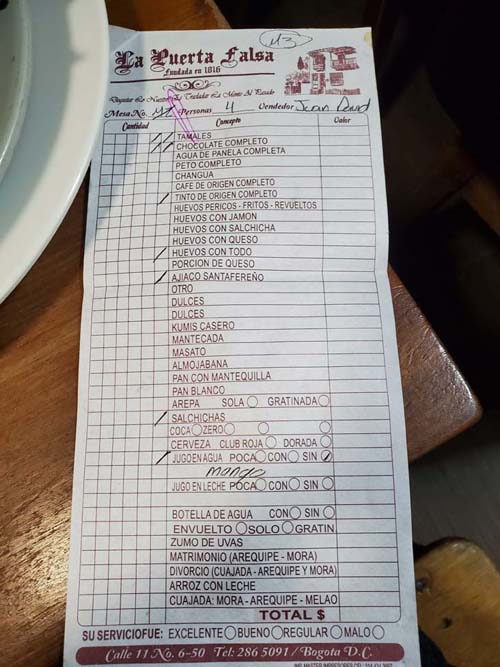 La Puerta Falsa
Fundada en 1816
Mesa No. Personas 4 Vendedor Juan David
Cantidad Concepto Valor
TAMALES
CHOCOLATE COMPLETO
AGUA DE PANELA COMPLETA
PETO COMPLETO
CHANGUA
CAFE DE ORIGEN COMPLETO
TINTO DE ORIGEN COMPLETO
HUEVOS PERICOS - FRITOS - REVUELTOS
HUEVOS CON JAMON
HUEVOS CON SALCHICHA
HUEVOS CON QUESO
HUEVOS CON TODO
PORCION DE QUESO
AJIACO SANTAFEREÑO
OTRO
DULCES
DULCES
KUMIS CASERO
MANTECADA
MASATO
ALMOJABANA
PAN CON MANTEQUILLA
PAN BLANCO
AREPA SOLA GRATINADA
SALCHICHAS
COCA ZERO
CERVEZA CLUB ROJA DORADA
JUGO EN AGUA POCA CON SIN
mango
JUGO EN LECHE POCA CON SIN
BOTELLA DE AGUA CON SIN
ENVUELTO SOLO GRATIN
ZUMO DE UVAS
MATRIMONIO (AREQUIPE - MORA)
DIVORCIO (CUAJADA - AREQUIPE Y MORA)
ARROZ CON LECHE
CUAJADA: MORA - AREQUIPE - MELAO
TOTAL $
SU SERVICIO FUE: EXCELENTE BUENO REGULAR MALO
Calle 11 No. 6-50 Tel: 286 5091 / Bogota D.C.